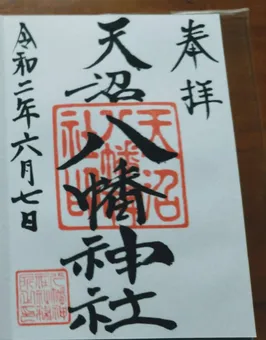 奉拝
天沼八幡神社
令和二年六月七日
天沼
八幡
社印